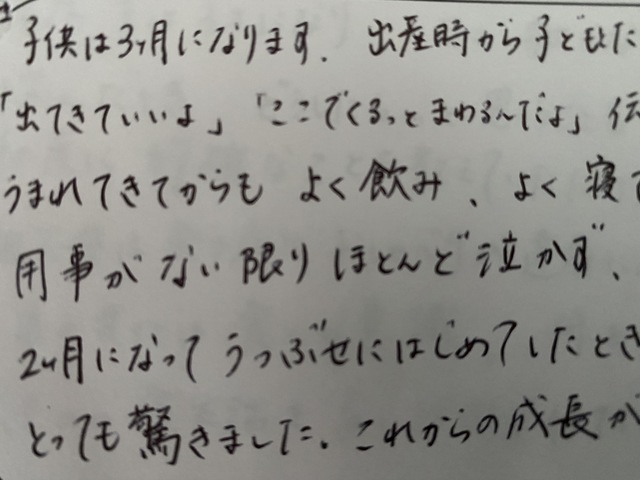 子供は3ヶ月になります. 出産時から子どもた
「出てきていいよ」「ここでくるっとまわるんだよ」伝
うまれてきてからも よく飲み、よく寝て
用事がない限りほとんど泣かず、
2ヶ月になってうつぶせにはじめてしたとき
とっても驚きました. これからの成長が